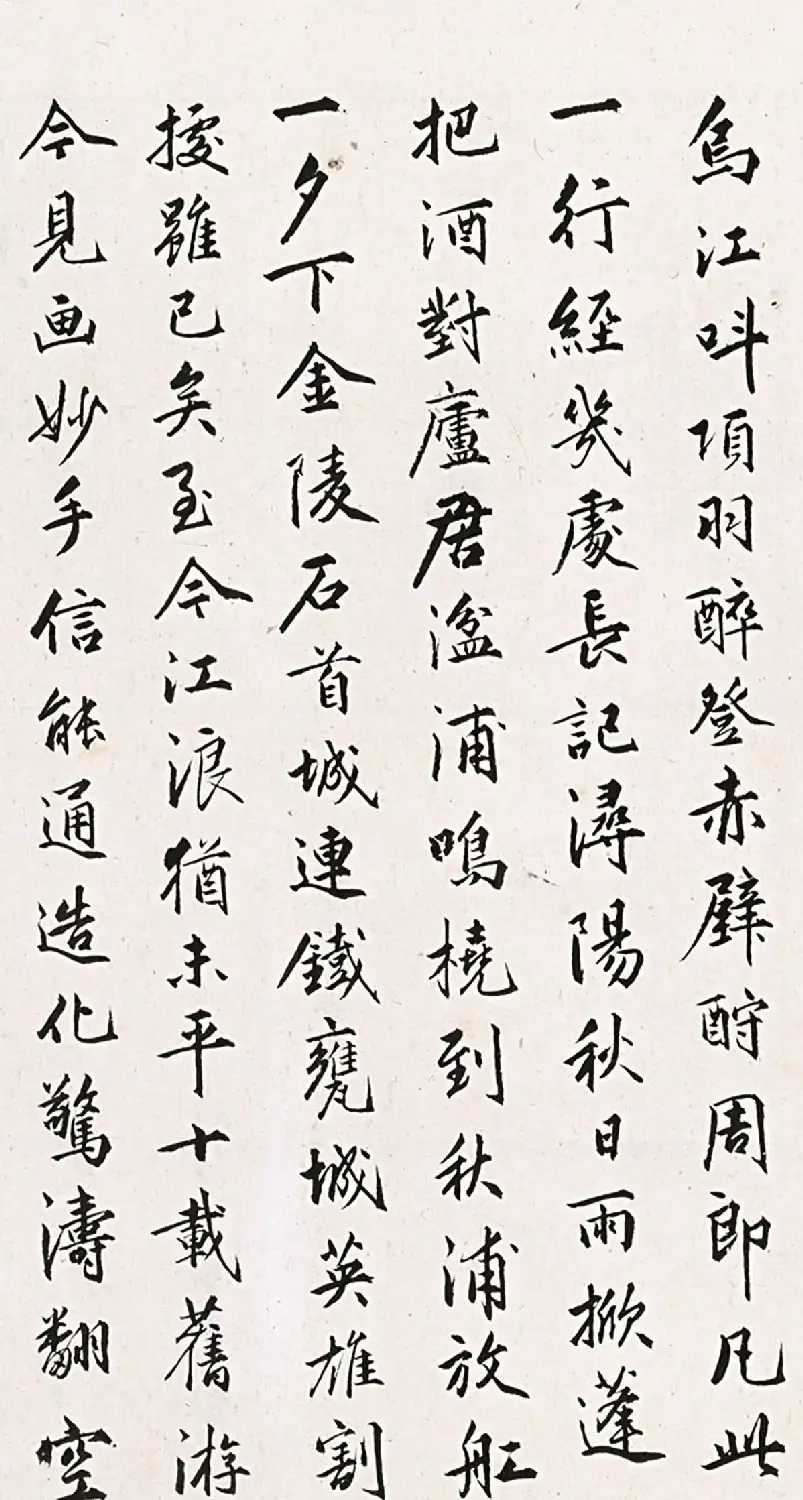 烏江呌項羽醉登赤壁酹周郎凡此
一行經幾處長記潯陽秋日雨掀蓬
把酒對廬君湓浦鳴橈到秋浦放舡
一夕下金陵石首城連鐵甕城英雄割
據雖已矣至今江浪猶未平十載舊游
今見画妙手信能通造化驚濤翻空